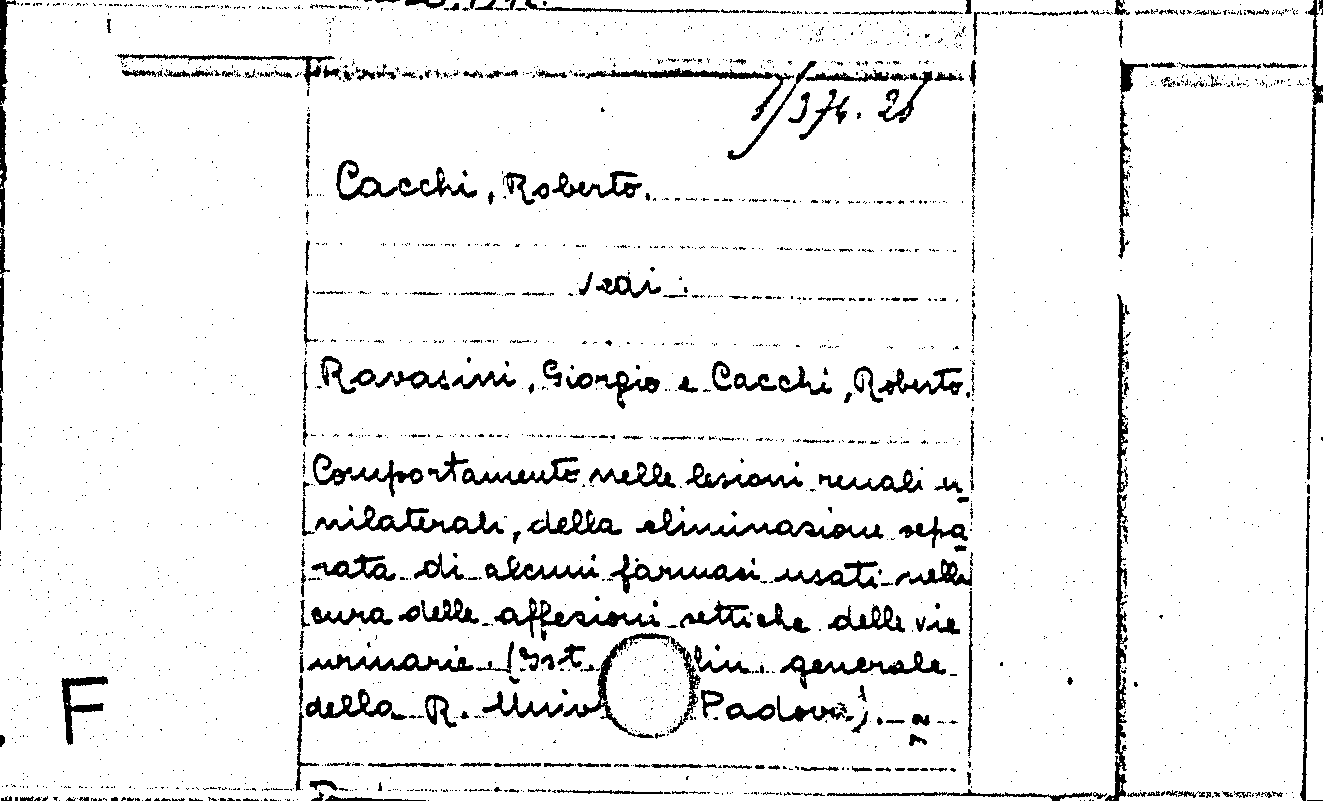 1/376. 28
Cacchi, Roberto.
Vedi:
Ravasini, Giorgio e Cacchi, Roberto.
Comportamento nelle lesioni renali u-
nilaterali, della eliminazione sepa-
rata di alcuni farmaci usati nella
cura delle affezioni settiche delle vie
urinarie. (Ist. lin. generale
della R. Univ Padova).
F